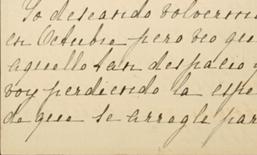 Yo deseando volverm
en Octubre pero veo qu
aquello tan despacio y
voy perdiendo la espe
de que se arregle par